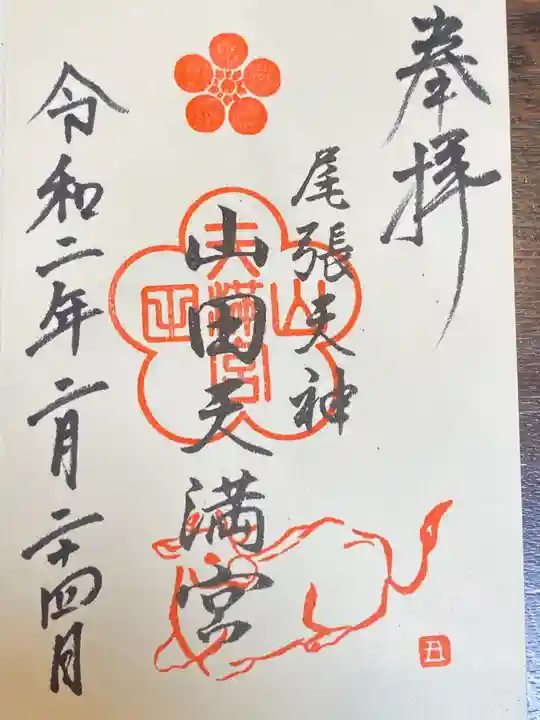 奉拝
尾張天神
山田天満宮
令和二年二月二十四日
山田
天満宮
丑